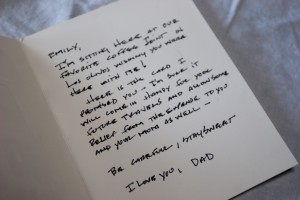 EMILY,
I'M SITTING HERE AT OUR
FAVORITE COFFEE JOINT IN
LOS OLIVOS WISHING YOU WERE
HERE WITH ME!
HERE IS THE CARD I
PROMISED YOU - I'M SURE IT
WILL COME IN HANDY FOR YOUR
FUTURE TRAVELS AND ALLOW SOME
RELIEF FROM THE EXPENSE TO YOU
AND YOUR MOM AS WELL -
BE CAREFUL, STAY SWEET
I LOVE YOU, DAD